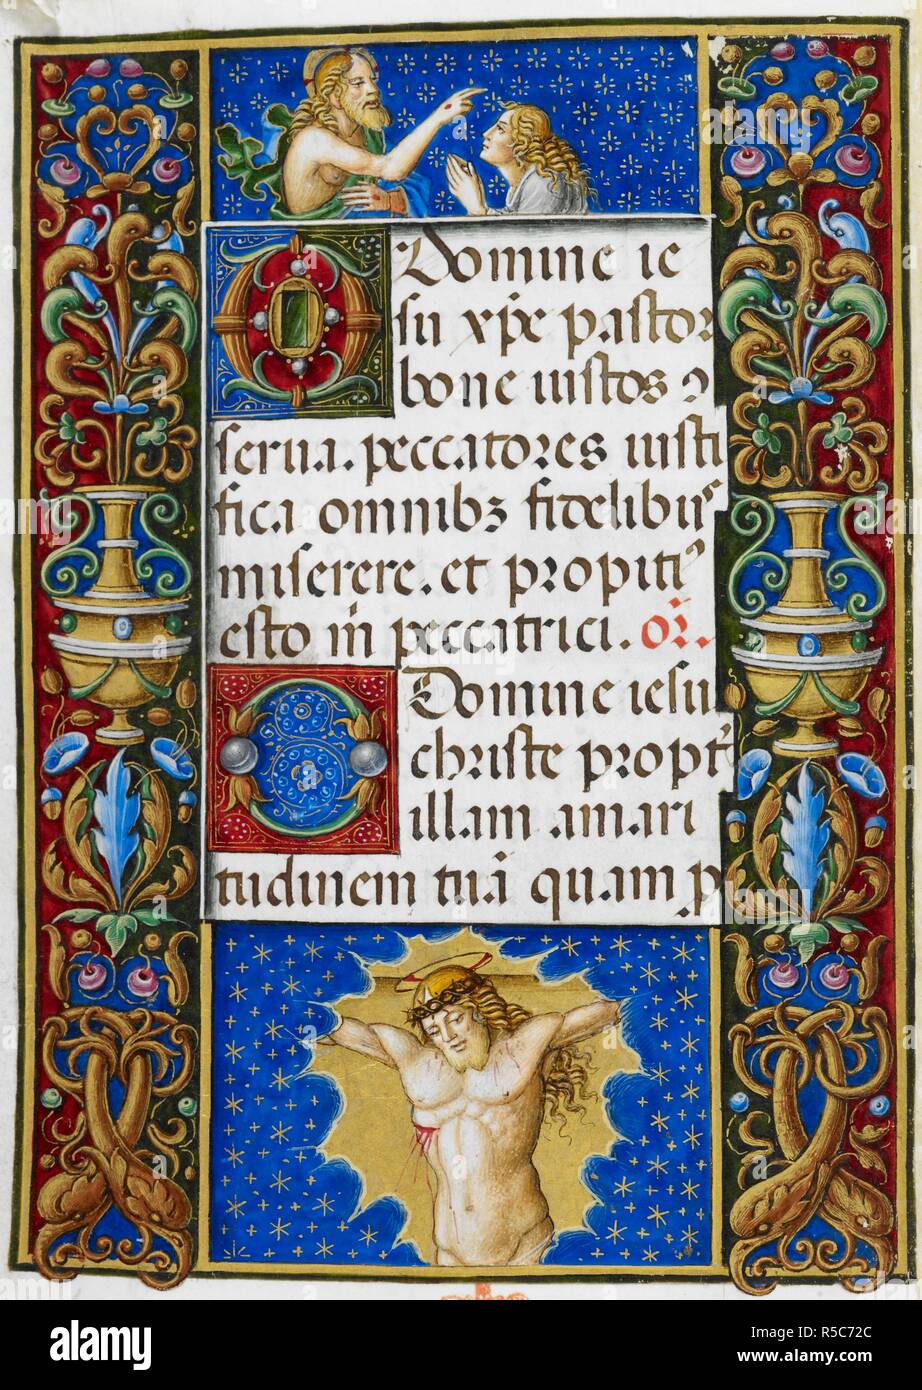 Domine ie
su xp̄e pastor
bone iustos ꝯ
serua. peccatores iusti
fica omnibꝫ fidelibus
miserere. et propitiꝰ
esto m̄ peccatrici. or̄.
Domine iesu
christe propt̄
illam amari
tudinem tuā quam p
alamy
Image ID: R5C72C
www.alamy.com